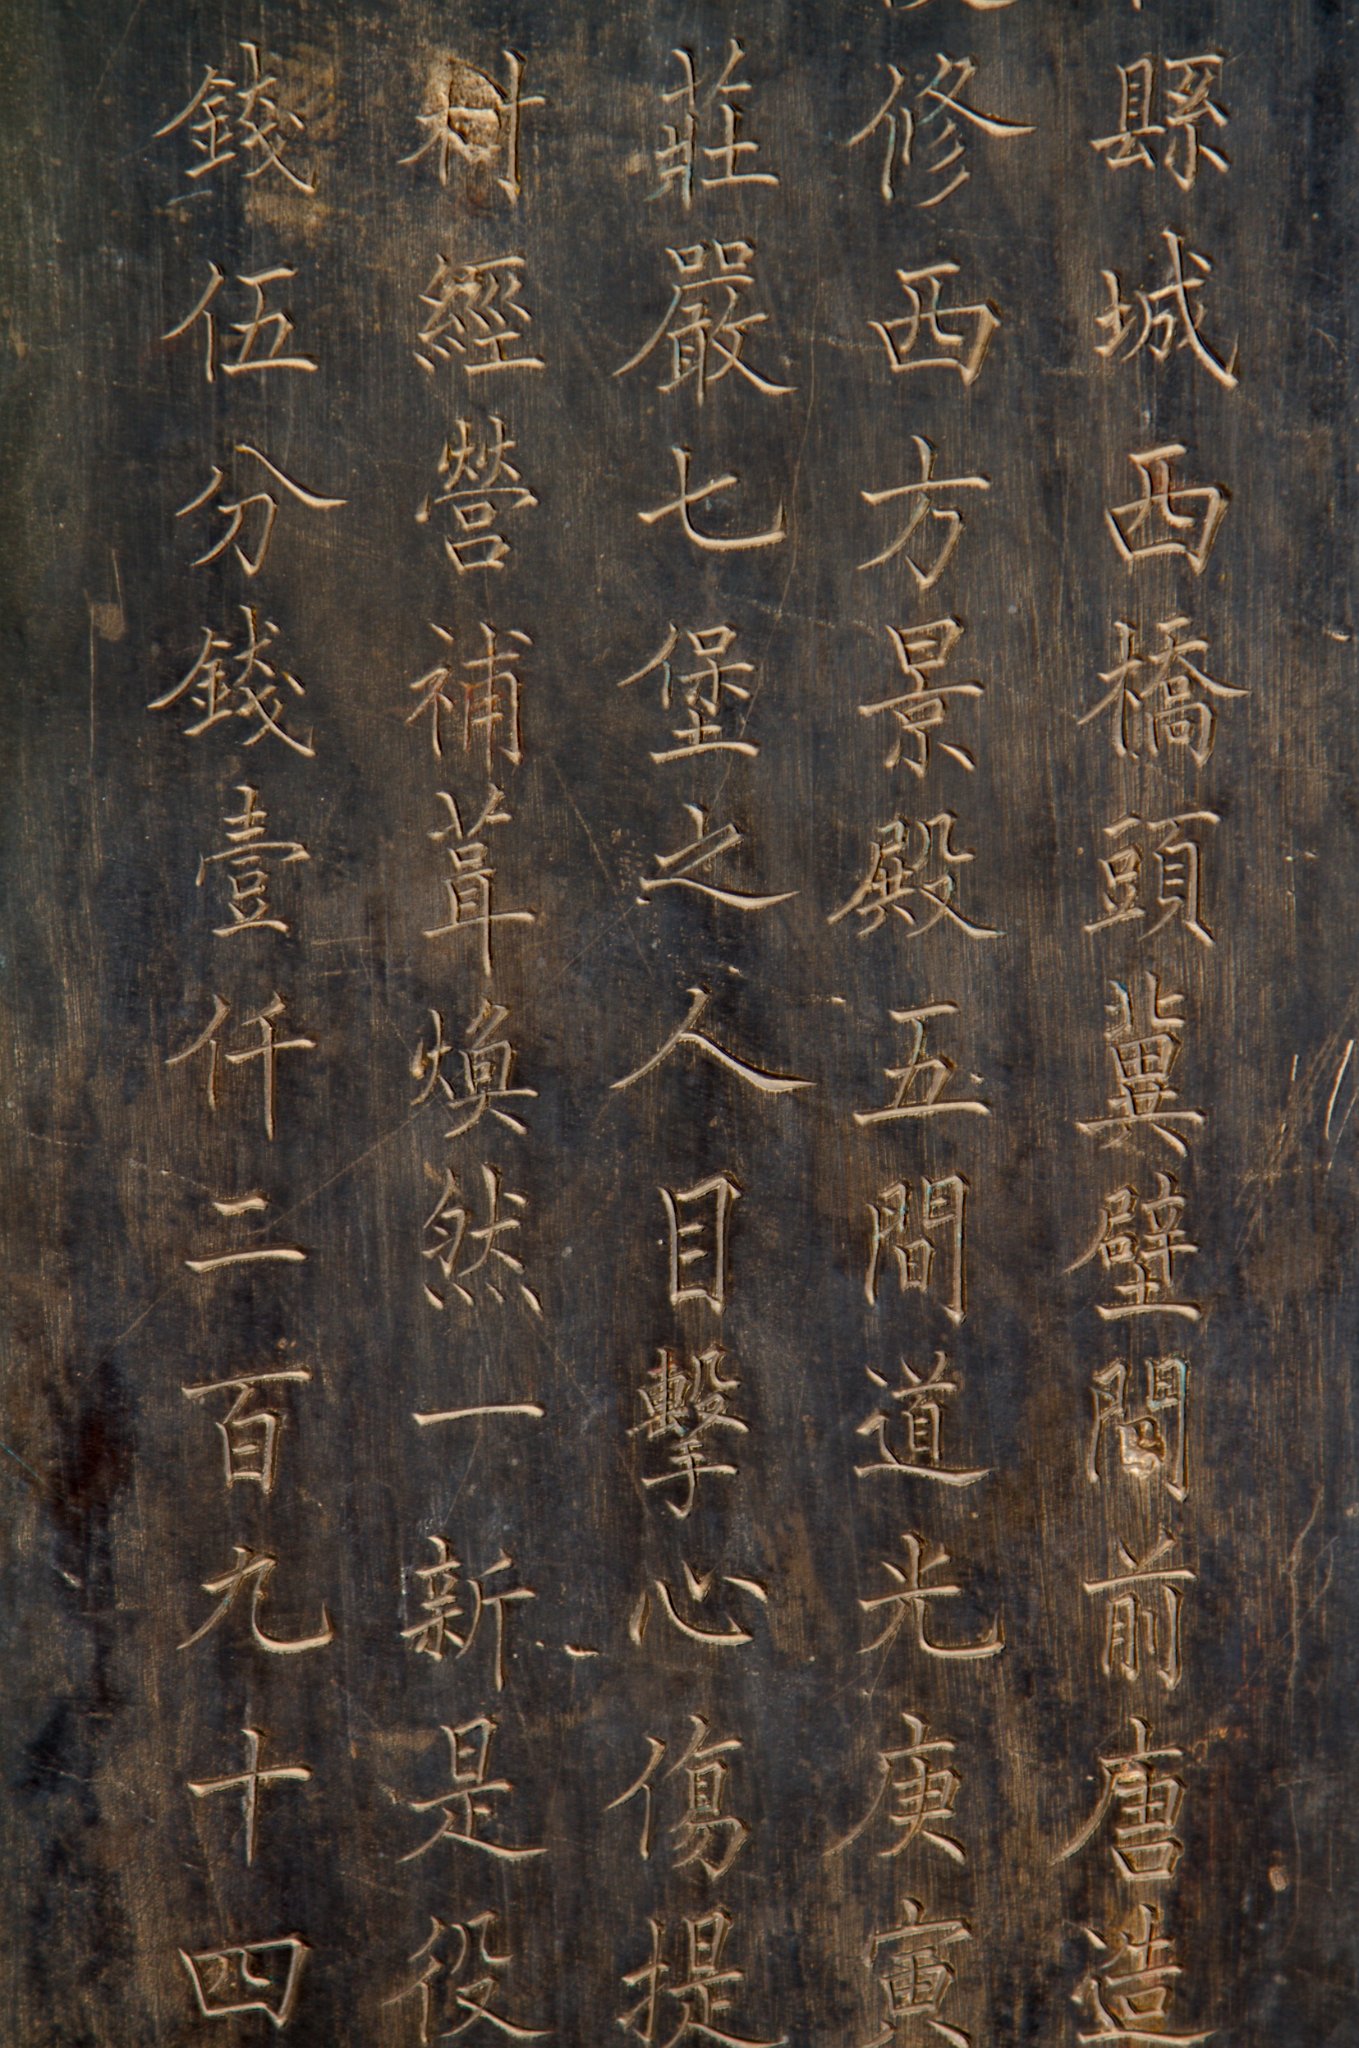 縣城西橋頭冀壁間前唐造
修西方景殿五間道光庚寅
莊嚴七堡之人目擊心傷提
料經營補葺煥然一新是役
錢伍分錢壹仟二百九十四